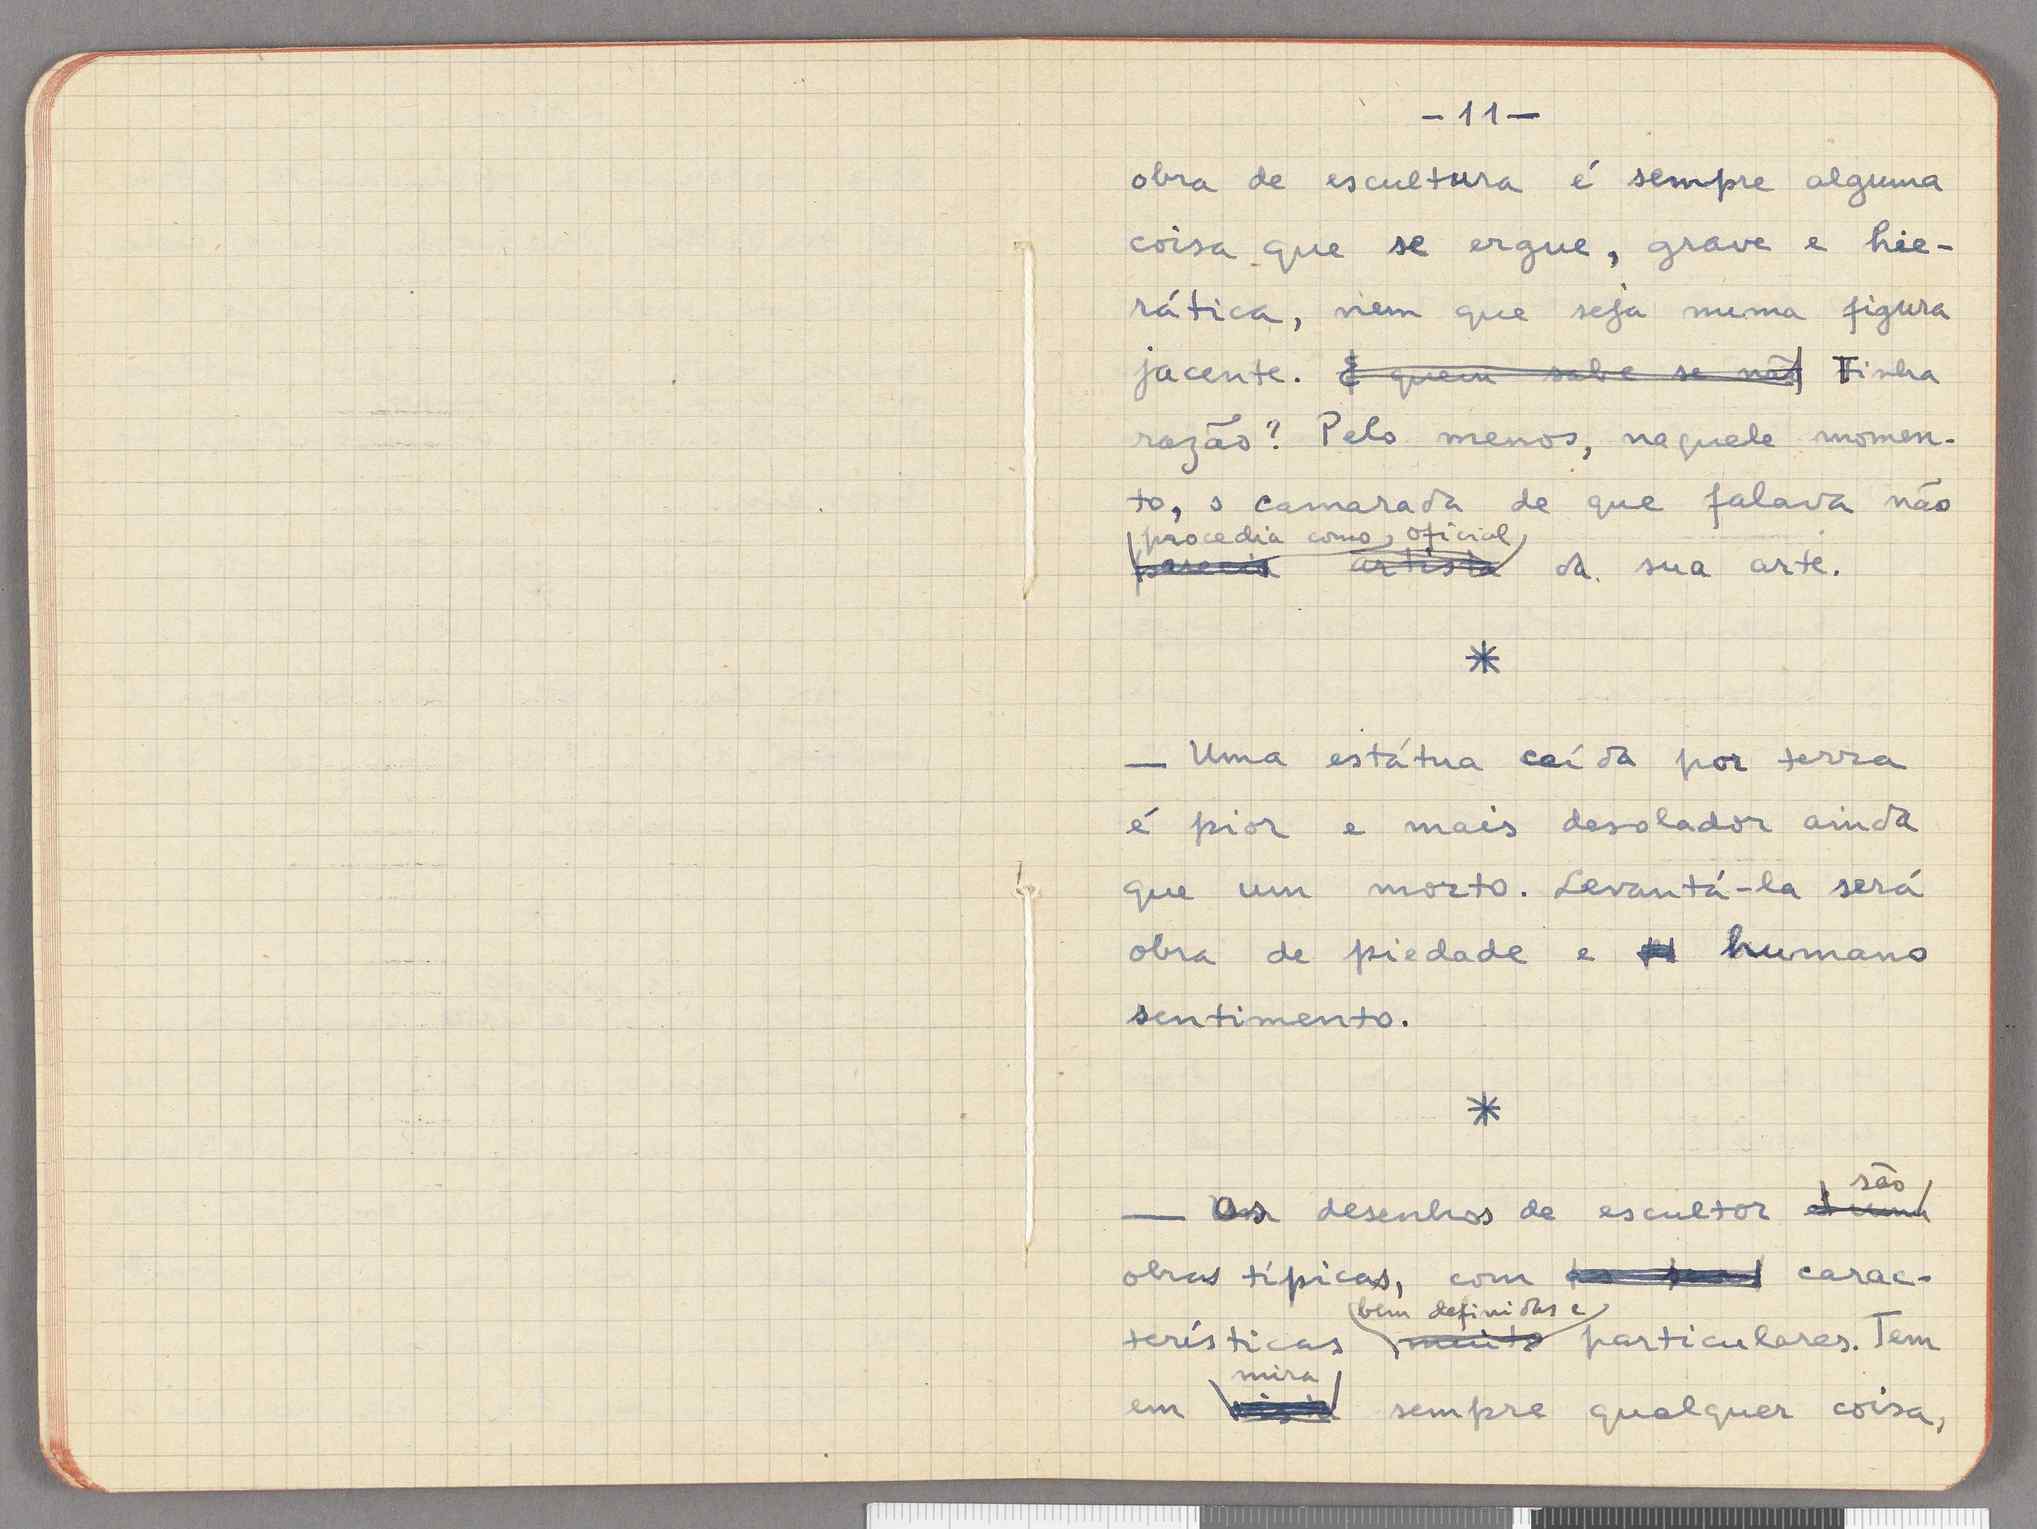 -11-
obra de escultura é sempre alguma
coisa que se ergue, grave e hie-
rática, nem que seja numa figura
jacente. E quem sabe se não Tinha
razão? Pelo menos, naquele momen-
to, o camarada de que falava não
procedia como oficial
parecia artista da sua arte.
*
— Uma estátua caída por terra
é pior e mais desolador ainda
que um morto. Levantá-la será
obra de piedade e humano
sentimento.
*
são
— Os desenhos de escultor
obras típicas, com carac-
bem definidas e
terísticas muito particulares. Tem
mira
em sempre qualquer coisa,